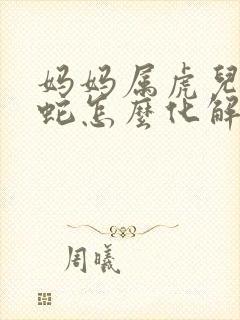 妈妈属虎兒
蛇怎麼化解
周曦